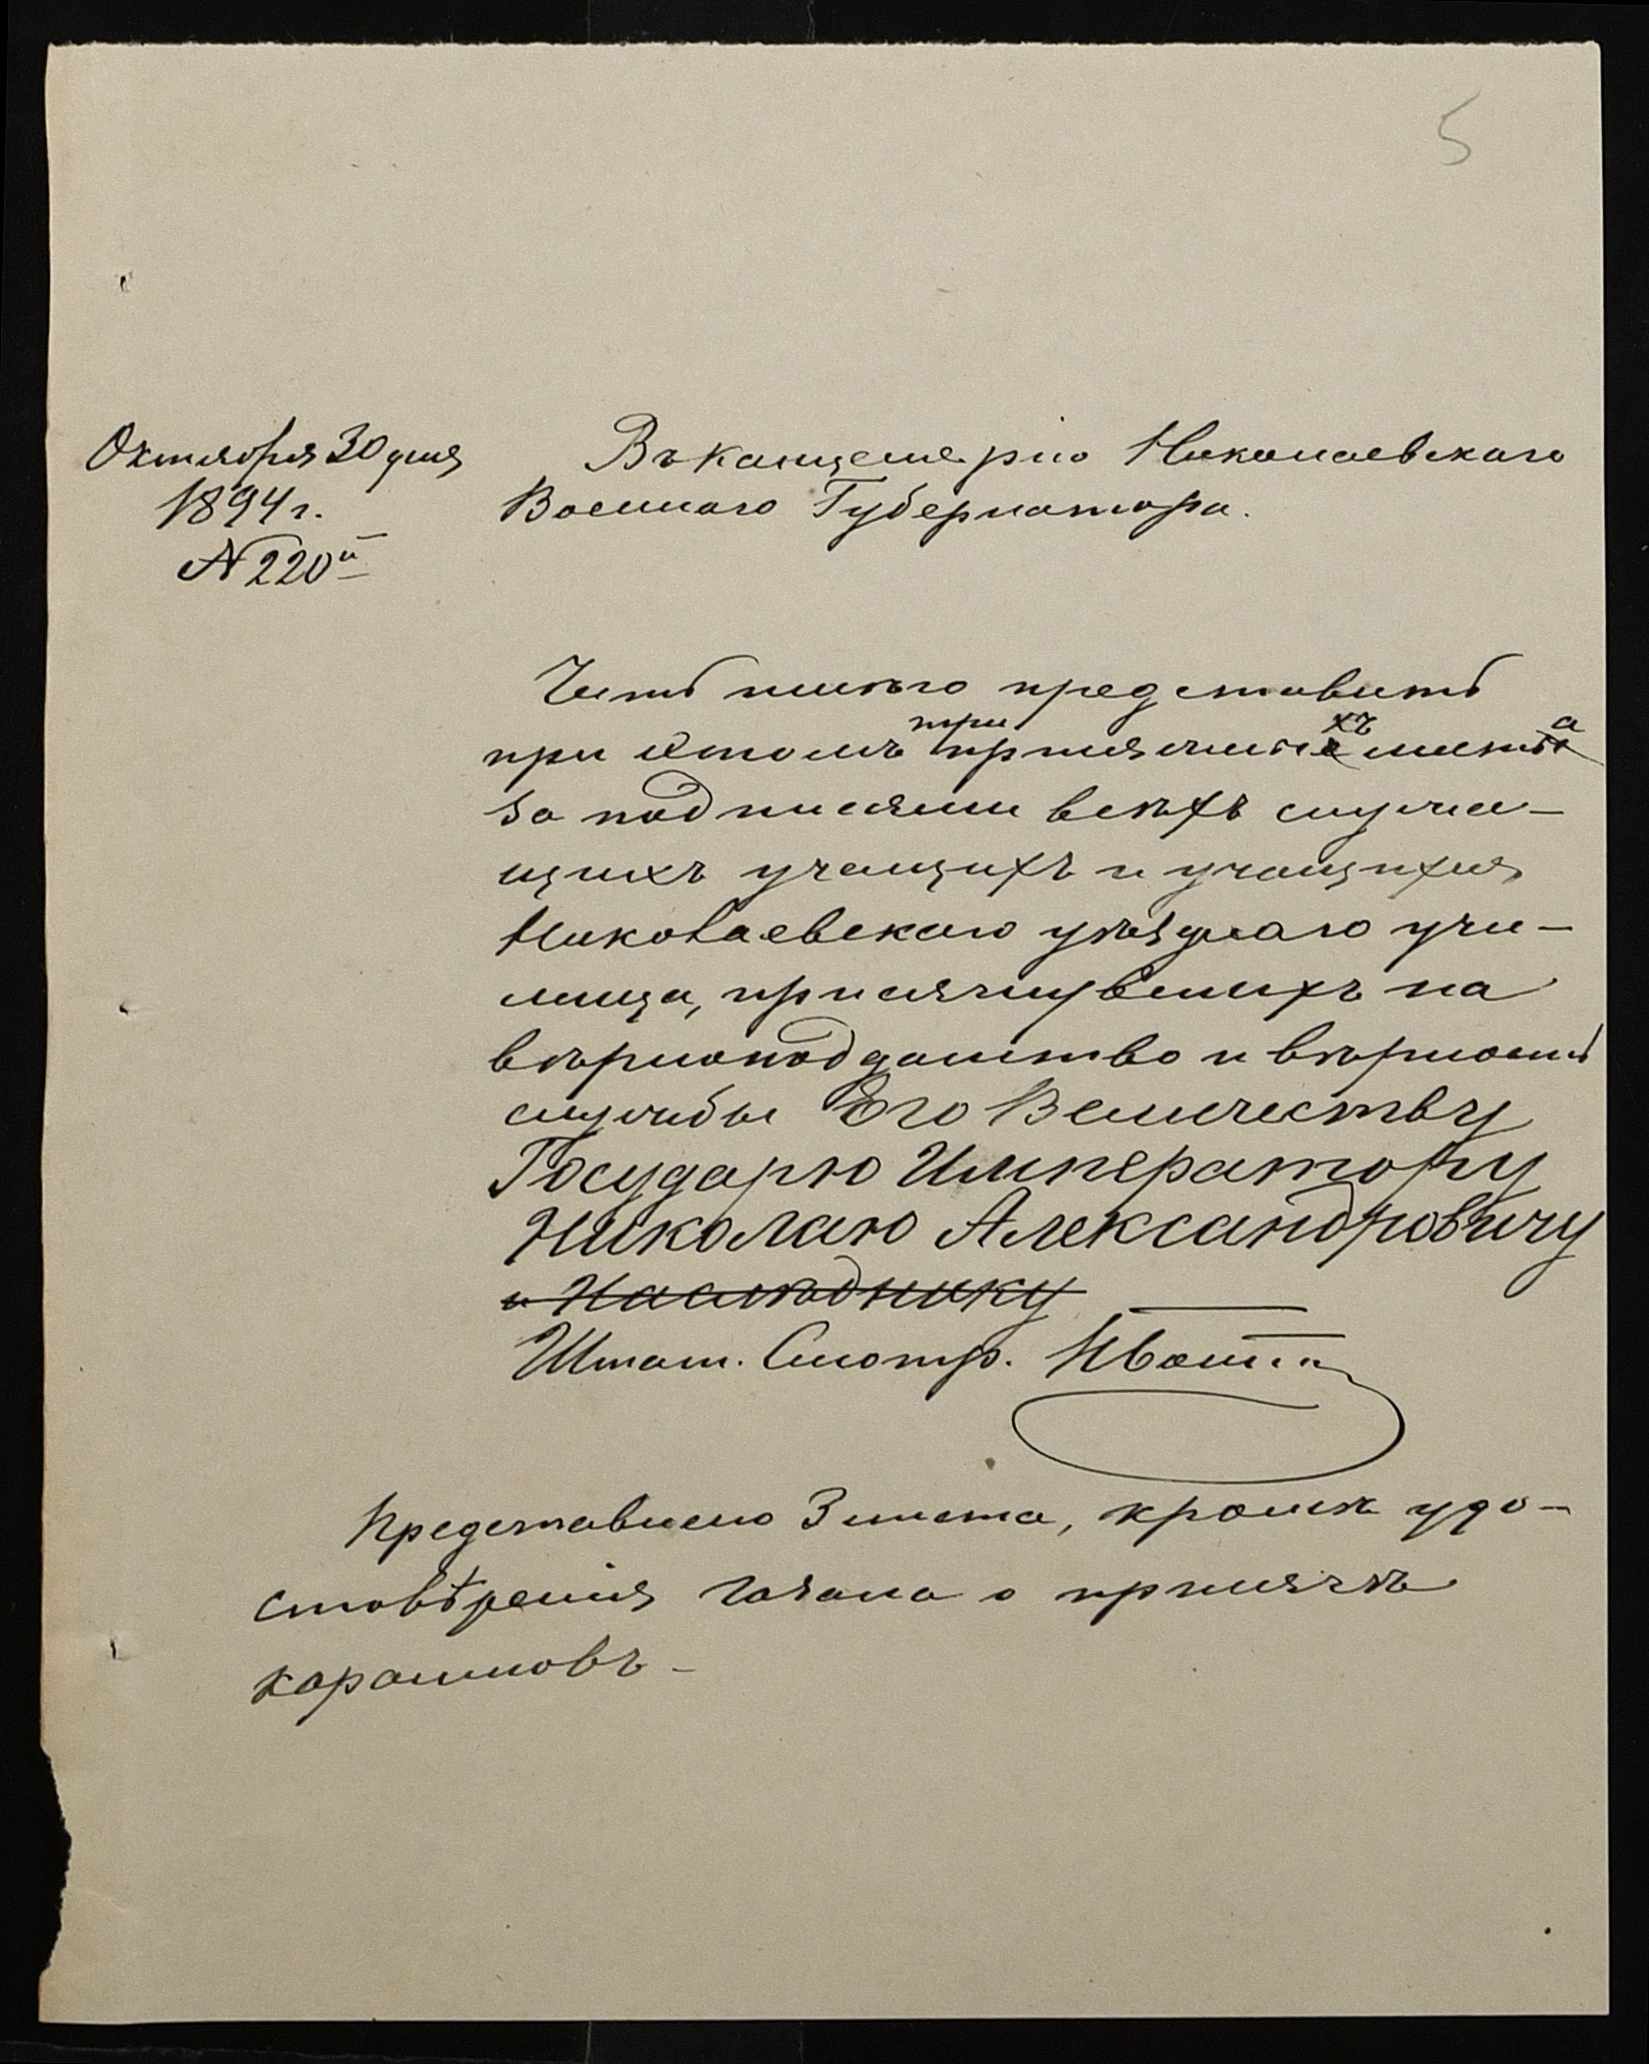 5
Октября 30 дня
1894 г.
№ 220й
Въ канцелярію Николаевскаго
Военнаго Губернатора.
Честь имѣю представить
при этомъ три присяжныхъ листа
за подписями всѣхъ служа-
щихъ учащихъ и учащихся
Николаевскаго уѣзднаго учи-
лища, присягнувшихъ на
вѣрноподданство и вѣрность
службы Его Величеству
Государю Императору
Николаю Александровичу
и Наслѣднику
Штат. Смотр.
Представлено 3 листа, кромѣ удо-
стовѣренія газана о присягѣ
караимовъ -